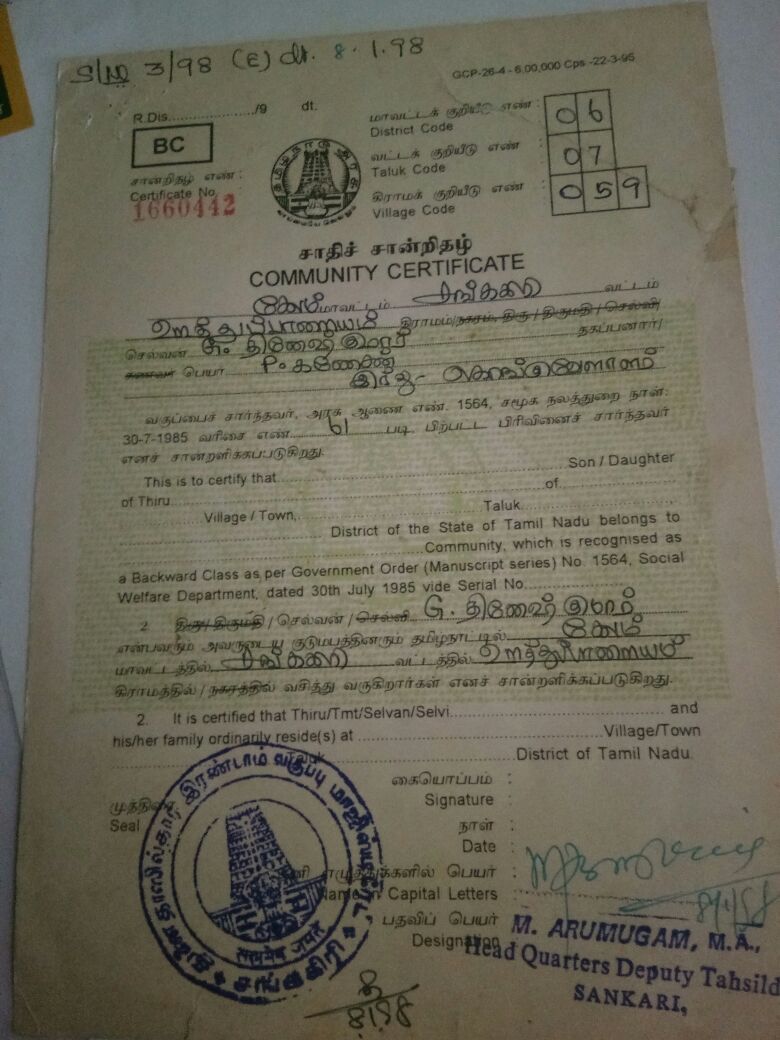 S/No 3/98 (E) dt. 8.1.98
GCP-26-4 - 6,00,000 Cps -22-3-95
R.Dis....................../9 dt.
BC
சான்றிதழ் எண் :
Certificate No.
1660442
மாவட்டக் குறியீடு எண் : 06
District Code
வட்டக் குறியீடு எண் : 07
Taluk Code
கிராமக் குறியீடு எண் : 059
Village Code
சாதிச் சான்றிதழ்
COMMUNITY CERTIFICATE
சேலம் மாவட்டம் சங்ககிரி வட்டம்
கிராமம்/நகரம், திரு / திருமதி / செல்வி/
செல்வன் G. தினேஷ் குமார் தகப்பனார்/
கணவர் பெயர் P. கணேசன்
இந்து - கொங்கு வேளாளர்
வகுப்பைச் சார்ந்தவர், அரசு ஆணை எண். 1564, சமூக நலத்துறை நாள்:
30-7-1985 வரிசை எண். 61 படி, பிற்பட்ட பிரிவினைச் சார்ந்தவர்
எனச் சான்றளிக்கப்படுகிறது.
This is to certify that.................... Son / Daughter
of Thiru.................... of....................
....................Village / Town,.................... Taluk....................
.................... District of the State of Tamil Nadu belongs to
....................Community, which is recognised as
a Backward Class as per Government Order (Manuscript series) No. 1564, Social
Welfare Department, dated 30th July 1985 vide Serial No....................
2. திரு/திருமதி / செல்வன் / செல்வி G. தினேஷ் குமார்
என்பவரும் அவருடைய குடும்பத்தினரும் தமிழ்நாட்டில் சேலம்
மாவட்டத்தில் சங்ககிரி வட்டத்தில்
கிராமத்தில் / நகரத்தில் வசித்து வருகிறார்கள் எனச் சான்றளிக்கப்படுகிறது.
2. It is certified that Thiru/Tmt/Selvan/Selvi.................... and
his/her family ordinarily reside(s) at ....................Village/Town
....................Taluk....................District of Tamil Nadu.
கையொப்பம் :
Signature :
முத்திரை
Seal
நாள் :
Date :
எழுத்துக்களில் பெயர் :
Name in Capital Letters
8/1/98
பதவிப் பெயர்
Designation
M. ARUMUGAM, M.A.,
Head Quarters Deputy Tahsild
SANKARI,
8/1/98